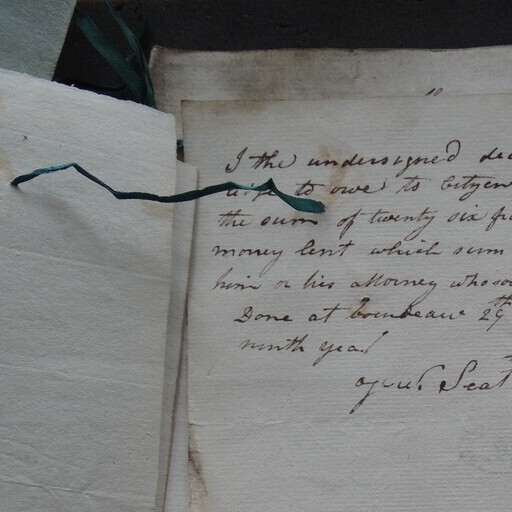 I the undersigned dec
to owe to Citizen
the sum of twenty six fr
money lent which sum
him or his attorney whoso
Done at bourdeaux 29th
ninth year
Seal